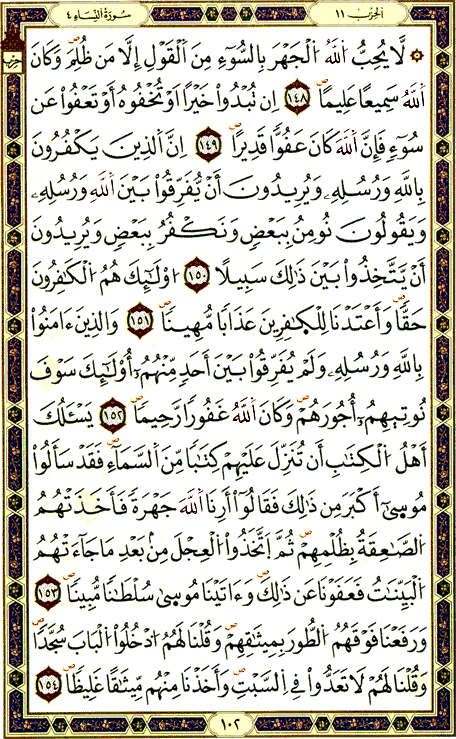 الحزب ١١
سُورَةُ النِّسَاء ٤
۞ لَّا يُحِبُّ اُللَّهُ اُلْجَهْرَ بِالسُّوٓءِ مِنَ اَلْقَوْلِ إِلَّا مَن ظُلِمَ وَكَانَ
اَللَّهُ سَمِيعًا عَلِيمًا ١٤٨ اِن تُبْدُواْ خَيْرًا اَوْ تُخْفُوهُ أَوْ تَعْفُواْ عَن
سُوٓءٍ فَإِنَّ اَللَّهَ كَانَ عَفُوًّا قَدِيرًا ١٤٩ اِنَّ اَلذِينَ يَكْفُرُونَ
بِاللَّهِ وَرُسُلِهِۦ وَيُرِيدُونَ أَنْ يُّفَرِّقُواْ بَيْنَ اَللَّهِ وَرُسُلِهِۦ
وَيَقُولُونَ نُومِنُ بِبَعْضٍ وَنَكْفُرُ بِبَعْضٍ وَيُرِيدُونَ
أَنْ يَّتَّخِذُواْ بَيْنَ ذَٰلِكَ سَبِيلًا ١٥٠ اُوْلَٰٓئِكَ هُمُ اُلْكَٰفِرُونَ
حَقًّا وَأَعْتَدْنَا لِلْكَٰفِرِينَ عَذَابًا مُّهِينًا ١٥١ وَالذِينَ ءَامَنُواْ
بِاللَّهِ وَرُسُلِهِۦ وَلَمْ يُفَرِّقُواْ بَيْنَ أَحَدٍ مِّنْهُمُۥٓ أُوْلَٰٓئِكَ سَوْفَ
نُوتِيهِمُۥٓ أُجُورَهُمْ وَكَانَ اَللَّهُ غَفُورًا رَّحِيمًا ١٥٢ يَسْـَٔلُكَ
أَهْلُ اُلْكِتَٰبِ أَن تُنَزِّلَ عَلَيْهِمْ كِتَٰبًا مِّنَ اَلسَّمَآءِ فَقَدْ سَأَلُواْ
مُوسَىٰٓ أَكْبَرَ مِن ذَٰلِكَ فَقَالُوٓاْ أَرِنَا اَللَّهَ جَهْرَةً فَأَخَذَتْهُمُ
اُلصَّٰعِقَةُ بِظُلْمِهِمْ ثُمَّ اَتَّخَذُواْ اُلْعِجْلَ مِنۢ بَعْدِ مَا جَآءَتْهُمُ
اُلْبَيِّنَٰتُ فَعَفَوْنَا عَن ذَٰلِكَ وَءَاتَيْنَا مُوسَىٰ سُلْطَٰنًا مُّبِينًا ١٥٣
وَرَفَعْنَا فَوْقَهُمُ اُلطُّورَ بِمِيثَٰقِهِمْ وَقُلْنَا لَهُمُ اُدْخُلُواْ اُلْبَابَ سُجَّدًا
وَقُلْنَا لَهُمْ لَا تَعَدُّواْ فِے اِلسَّبْتِ وَأَخَذْنَا مِنْهُم مِّيثَٰقًا غَلِيظًا ١٥٤
١٠٢